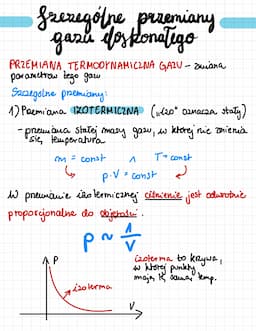 Szczególne przemiany
gazu doskonałego
PRZEMIANA TERMODYNAMICZNA GAZU - zmiana
parametrów tego gazu
Szczególne przemiany:
1) Przemiana IZOTERMICZNA ("izo" oznacza stały)
- przemiana stałej masy gazu, w której nie zmienia
się temperatura
m = const ∧ T = const
p·V = const
W przemianie izotermicznej ciśnienie jest odwrotnie
proporcjonalne do objętości.
p ~ 1/V
izoterma to krzywa,
w której punkty
mają tę samą temp.
P
izoterma
V